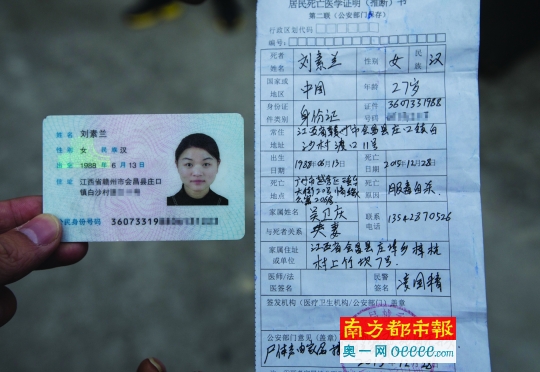 姓名 刘素兰
性别 女 民族 汉
出生 1988 年 6 月 13 日
住址 江西省赣州市会昌县庄口
镇白沙村
公民身份号码 36073319
居民死亡医学证明（推断）书
第二联（公安部门保存）
行政区划代码
编号
死者姓名 刘素兰 性别 女 民族 汉
国家或地区 中国 年龄 27岁
身份证件类别 身份证 证件号码 3607331988
常住 江西省赣州市会昌县庄口镇白
沙村渡口11号
1988年06月13日 死亡日期 2015年12月28日
死亡地点 死亡原因 服毒自杀
家属姓名 吴卫庆 联系电话 13542870526
与死者关系 夫妻
家属住址或单位 江西省会昌县庄埠乡
村上竹坝7号
医师/法医签名 民警签名 凌国精
签发机构（医疗卫生机构/公安部门）盖章
公安部门意见（盖章）
尸体由家属
南方都市报
奥一网 oeeee.com